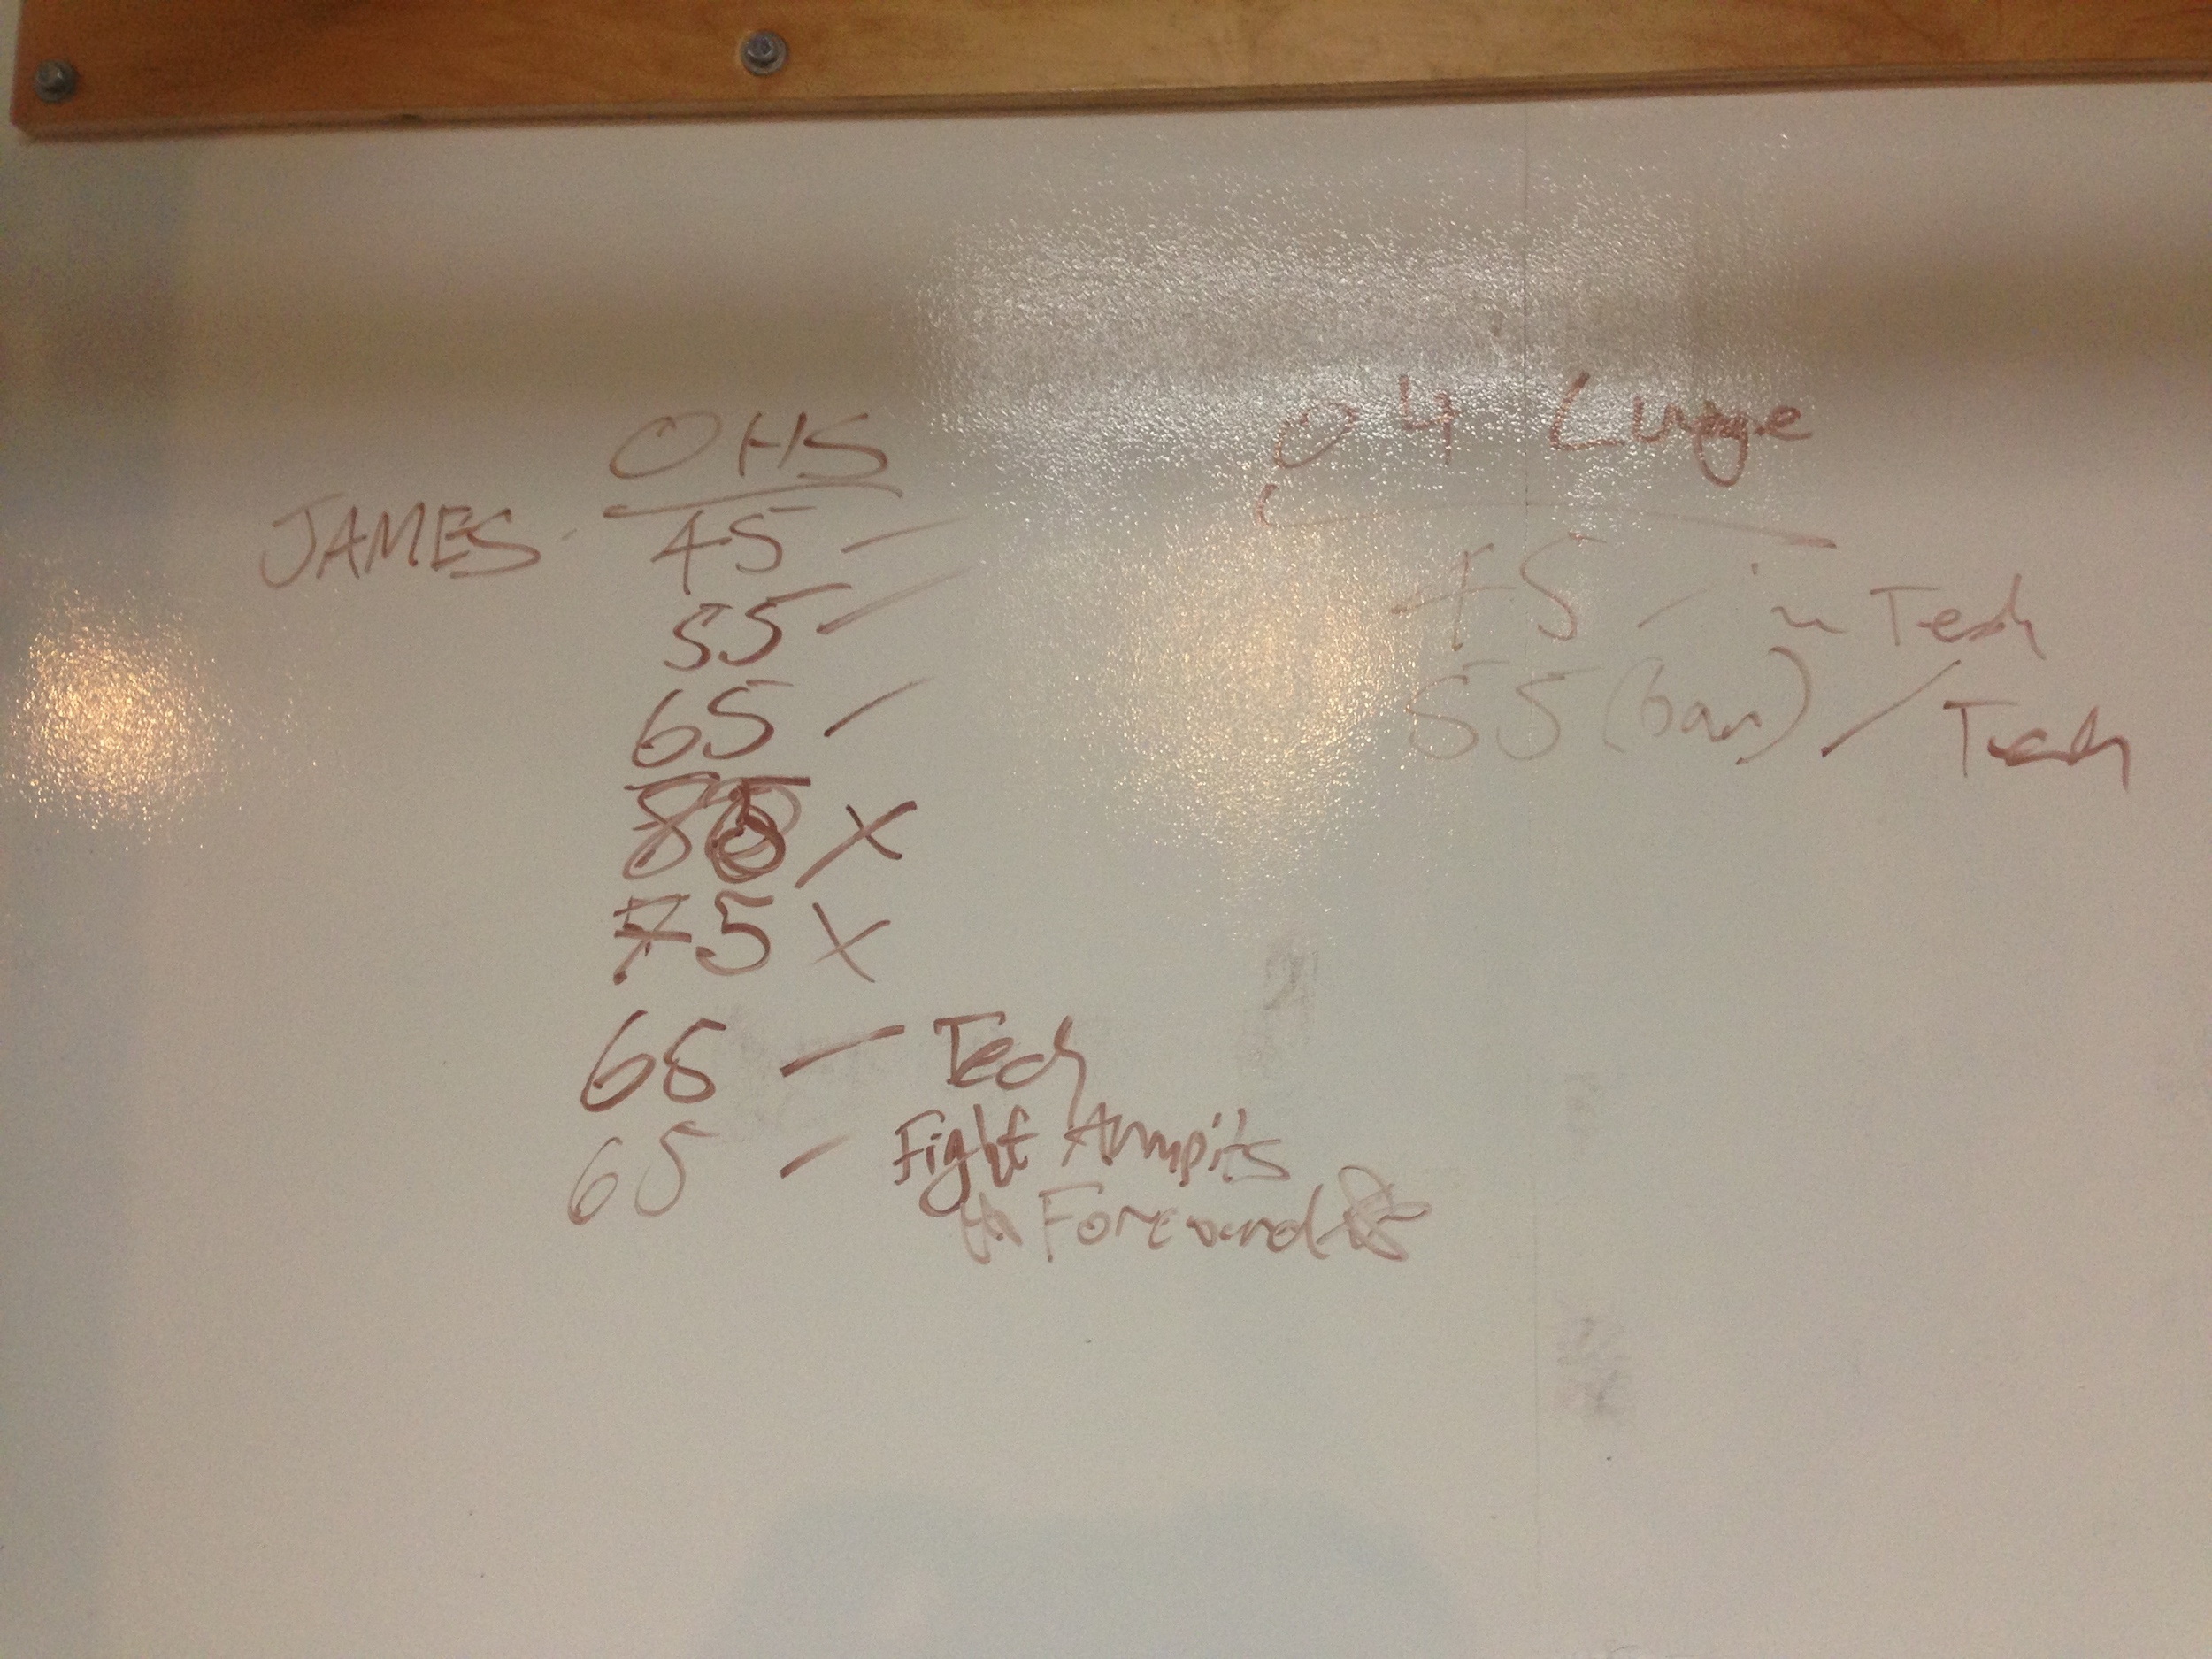 OHS
JAMES
45 –
55 –
65 –
X
75 X
65 – Tech
65 – Fight Armpits
Forward
OH Lunge
45 – in Tech
55 (bar) / Tech